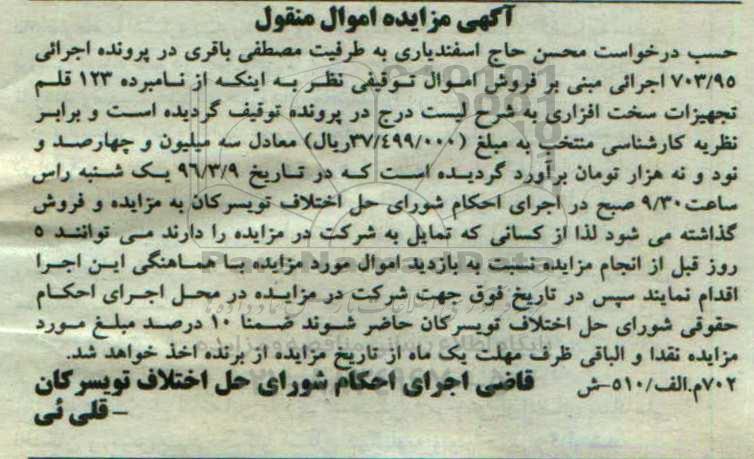 آگهی مزایده اموال منقول
حسب درخواست محسن حاج اسفندیاری به طرفیت مصطفی باقری در پرونده اجرائی
۷۰۳/۹۵ اجرائی مبنی بر فروش اموال توقیفی نظر به اینکه از نامبرده ۱۲۳ قلم
تجهیزات سخت افزاری به شرح لیست درج در پرونده توقیف گردیده است و برابر
نظریه کارشناسی منتخب به مبلغ (۳۷/۴۹۹/۰۰۰ریال) معادل سه میلیون و چهارصد و
نود و نه هزار تومان برآورد گردیده است که در تاریخ ۹۶/۳/۹ یک شنبه راس
ساعت۹/۳۰ صبح در اجرای احکام شورای حل اختلاف تویسرکان به مزایده و فروش
گذاشته می شود لذا از کسانی که تمایل به شرکت در مزایده را دارند می توانند ۵
روز قبل از انجام مزایده نسبت به بازدید اموال مورد مزایده با هماهنگی این اجرا
اقدام نمایند سپس در تاریخ فوق جهت شرکت در مزایده در محل اجرای احکام
حقوقی شورای حل اختلاف تویسرکان حاضر شوند ضمنا ۱۰ درصد مبلغ مورد
مزایده نقدا و الباقی ظرف مهلت یک ماه از تاریخ مزایده از برنده اخذ خواهد شد.
۷۰۲م.الف/۵۱۰-ش قاضی اجرای احکام شورای حل اختلاف تویسرکان
- قلی ئی